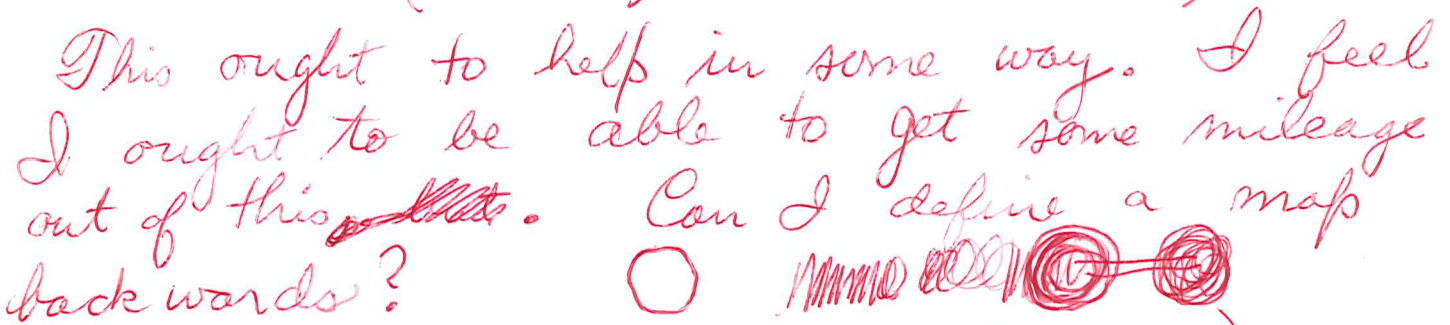 This ought to help in some way. I feel
I ought to be able to get some mileage
out of this. Can I define a map
backwards?